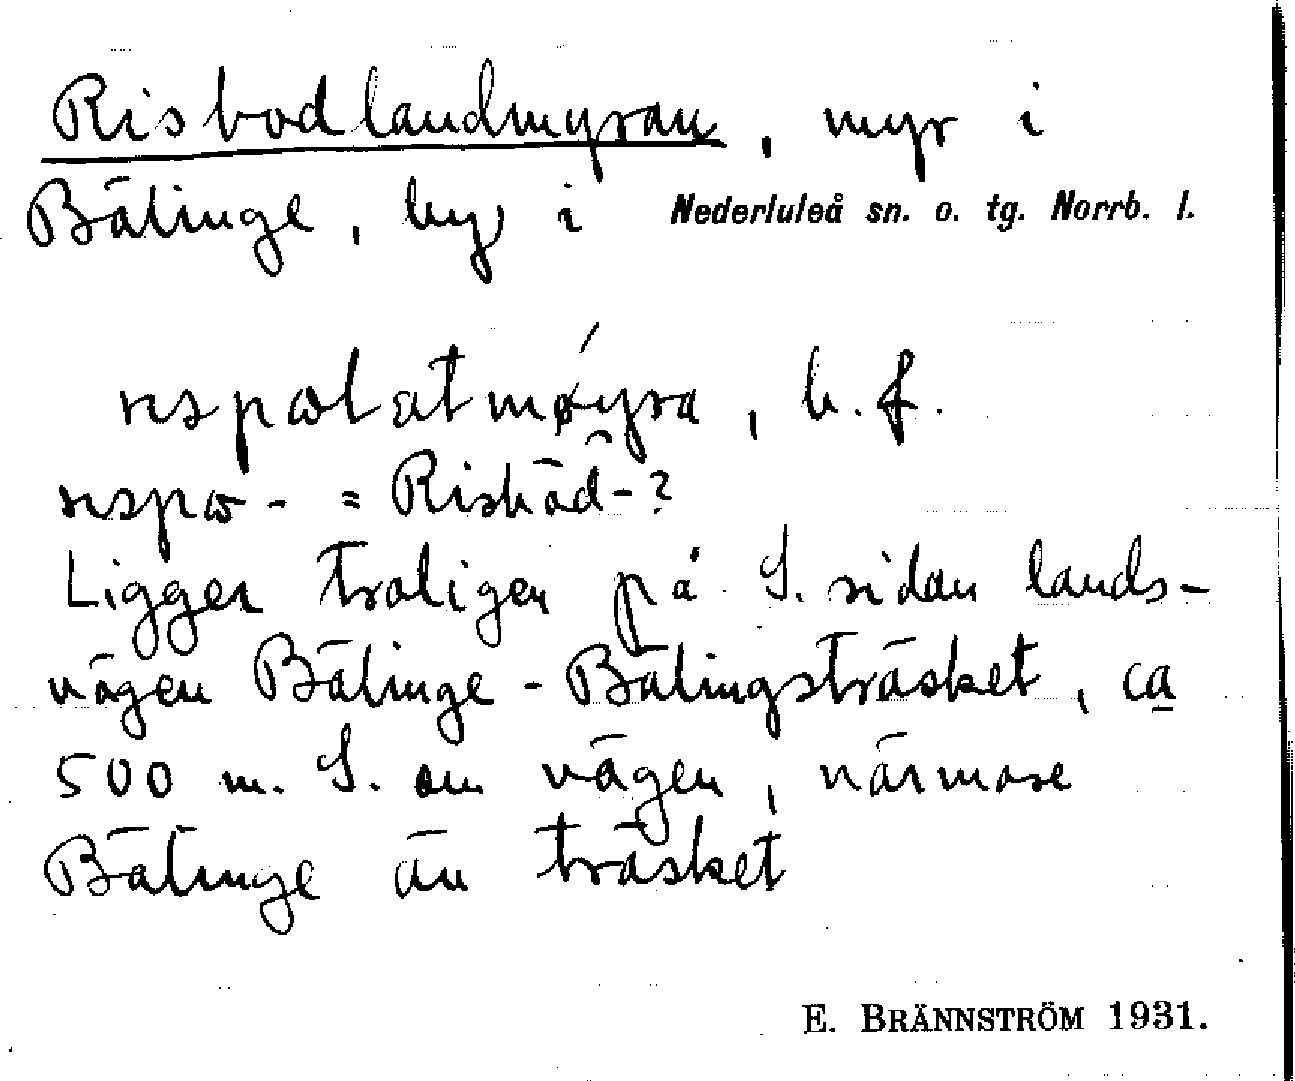 Risbodlandmyran, myr i
Bälinge, by i Nederluleå sn. o. tg. Norrb. l.
b. f.
- = Risbäd-?
Ligger troligen på S. sidan lands-
vägen Bälinge - Bälingsträsket, ca
500 m. S. om vägen, närmare
Bälinge än träsket
E. BRÄNNSTRÖM 1931.